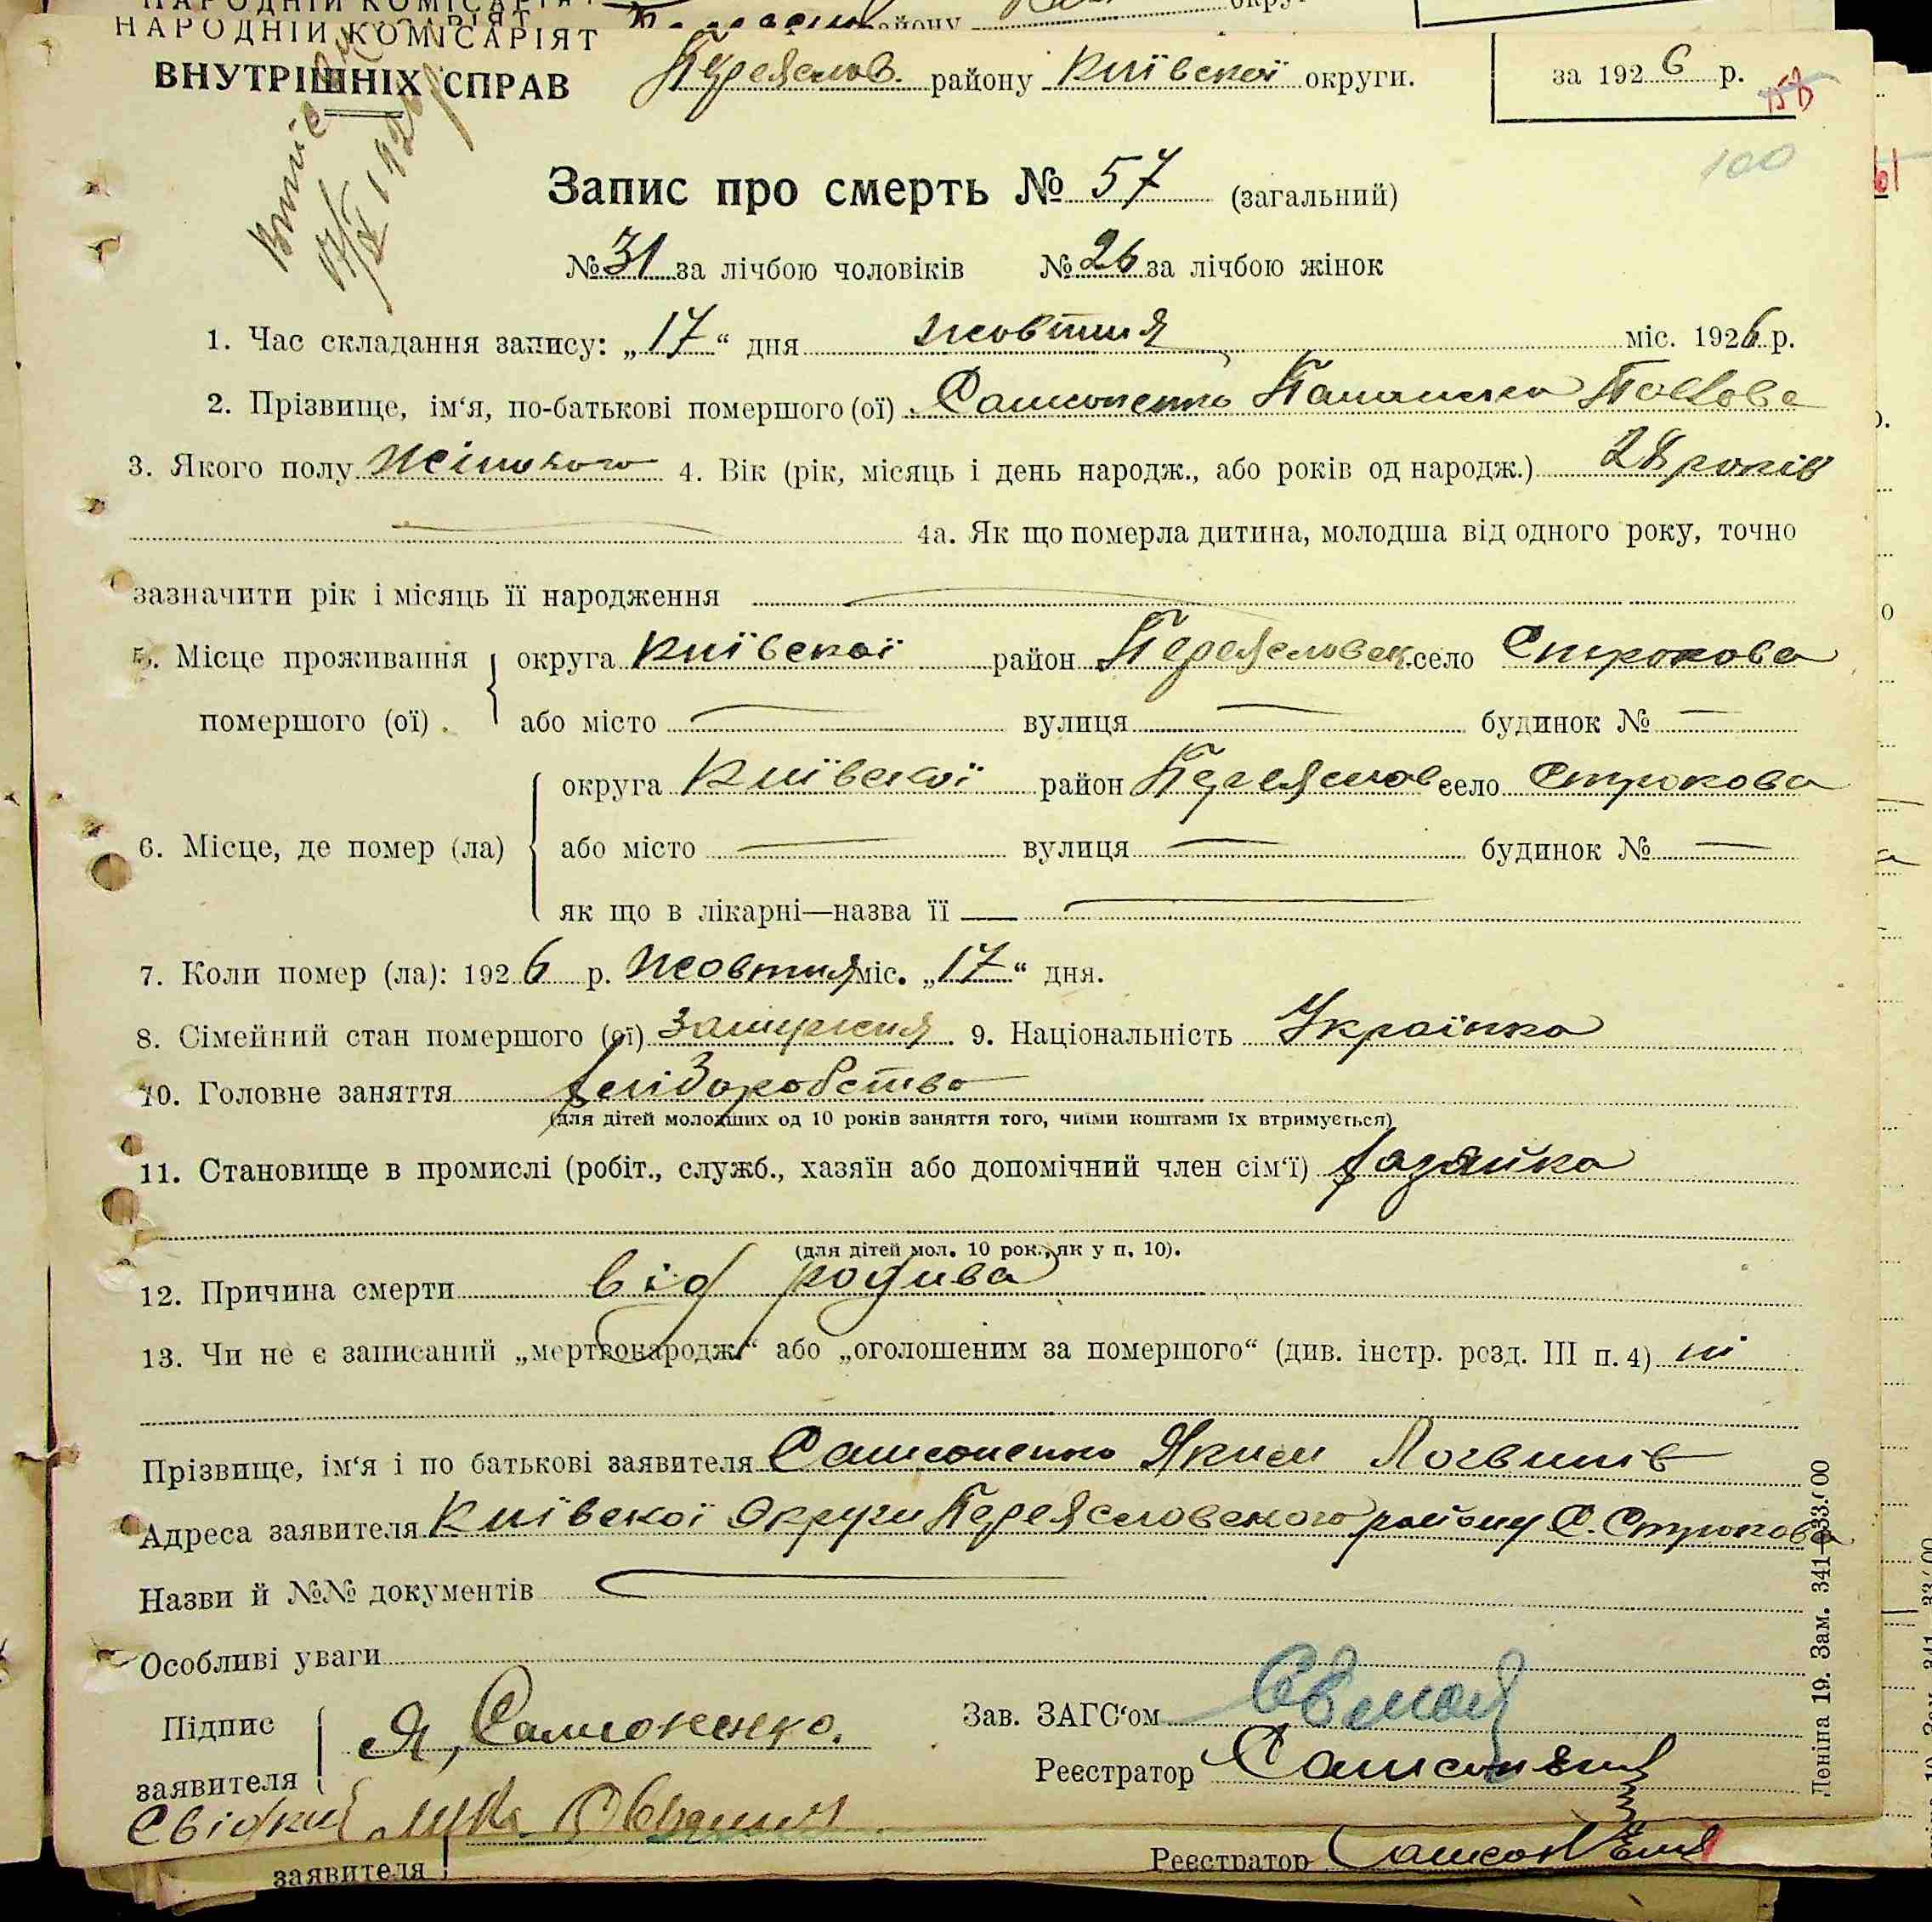 НАРОДНІЙ КОМІСАРІЯТ
ВНУТРІШНІХ СПРАВ
Переяслов. району Київскої округи.
за 1926 р.
100
Запис про смерть № 57 (загальний)
№ 31 за лічбою чоловіків № 26 за лічбою жінок
1. Час складання запису: „17“ дня жовтня міс. 1926 р.
2. Прізвище, ім‘я, по-батькові помершого (ої) Самсоненко Павлова
3. Якого полу жіночого 4. Вік (рік, місяць і день народж., або років од народж.) 28 років
4а. Як що померла дитина, молодша від одного року, точно
зазначити рік і місяць її народження
5. Місце проживання помершого (ої) округа Київскої район Переясловск. село Строкова
або місто — вулиця — будинок № —
6. Місце, де помер (ла) округа Київскої район Переяслов село Строкова
або місто — вулиця — будинок № —
як що в лікарні—назва її —
7. Коли помер (ла): 1926 р. жовтня міс. „17“ дня.
8. Сімейний стан помершого (ої) замужня. 9. Національність Українка
10. Головне заняття хліборобство
(для дітей молодших од 10 років заняття того, чиїми коштами їх втримується)
11. Становище в промислі (робіт., служб., хазяїн або допомічний член сім‘ї) хазяйка
(для дітей мол. 10 рок., як у п. 10).
12. Причина смерти від родива
13. Чи не є записаний „мертвонародж.“ або „оголошеним за помершого“ (див. інстр. розд. III п. 4) ні
Прізвище, ім‘я і по батькові заявителя Самсоненко Яким Логвинів
Адреса заявителя Київскої Округи Переясловского району С. Строкова
Назви й №№ документів
Особливі уваги
Підпис заявителя Я, Самсоненко.
Зав. ЗАГС‘ом
Реєстратор
Свідки
Леніна 19. Зам. 341—33.000
заявителя
Реєстратор